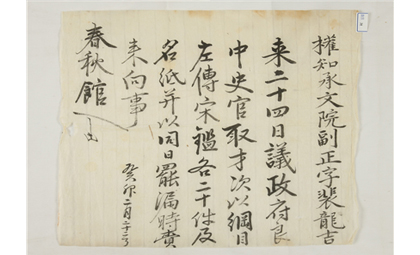 權知承文院副正字裴龍吉
來二十四日議政府良
中史官取才次以綱目
左傳宋鑑各二十件及
名紙幷以同日罷漏時賫
來向事
癸卯二月二十二日
春秋館